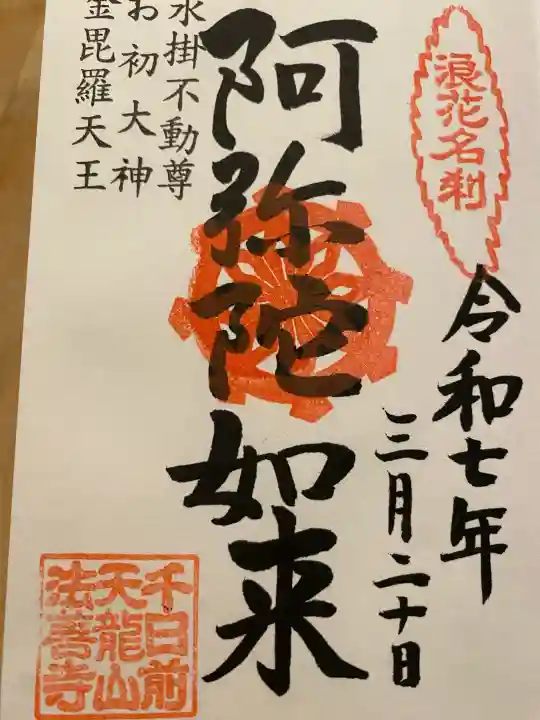 浪花名刹
令和七年
三月二十日
阿弥陀如来
水掛不動尊
お初大神
金毘羅天王
千日前
天龍山
法善寺